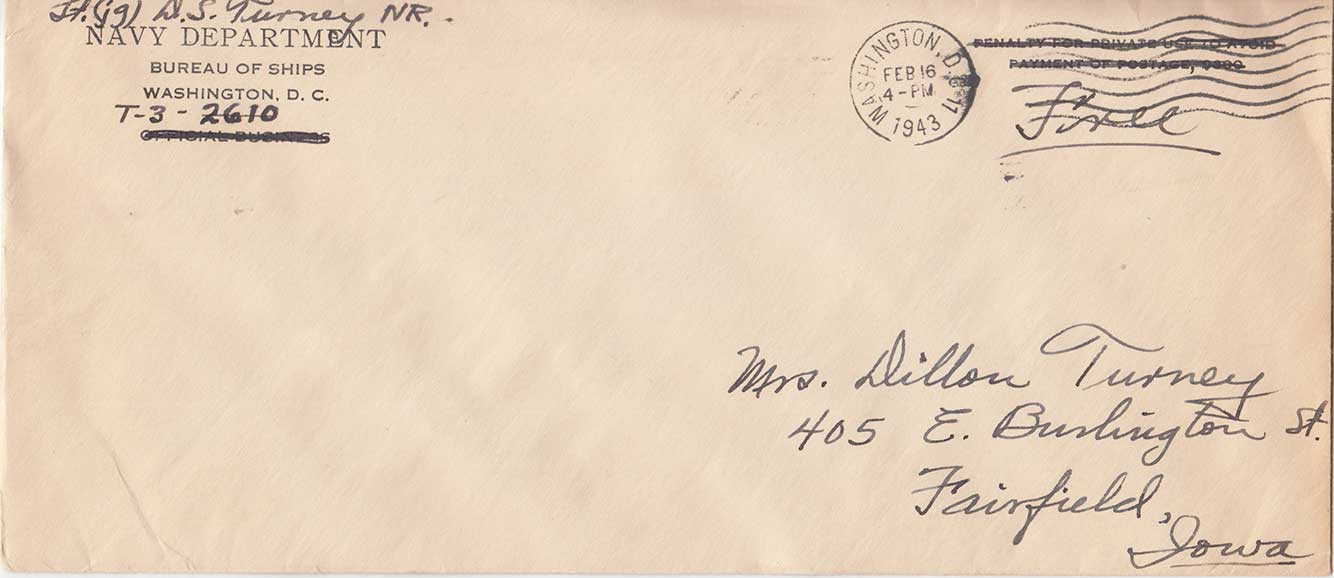 Lt.(jg) D.S. Turney NR.
NAVY DEPARTMENT
BUREAU OF SHIPS
WASHINGTON, D. C.
T-3 - 2610
OFFICIAL BUSINESS
WASHINGTON, D.C. 11
FEB 16
4-PM
1943
PENALTY FOR PRIVATE USE TO AVOID
PAYMENT OF POSTAGE, $300
Free
Mrs. Dillon Turney
405 E. Burlington St.
Fairfield,
Iowa